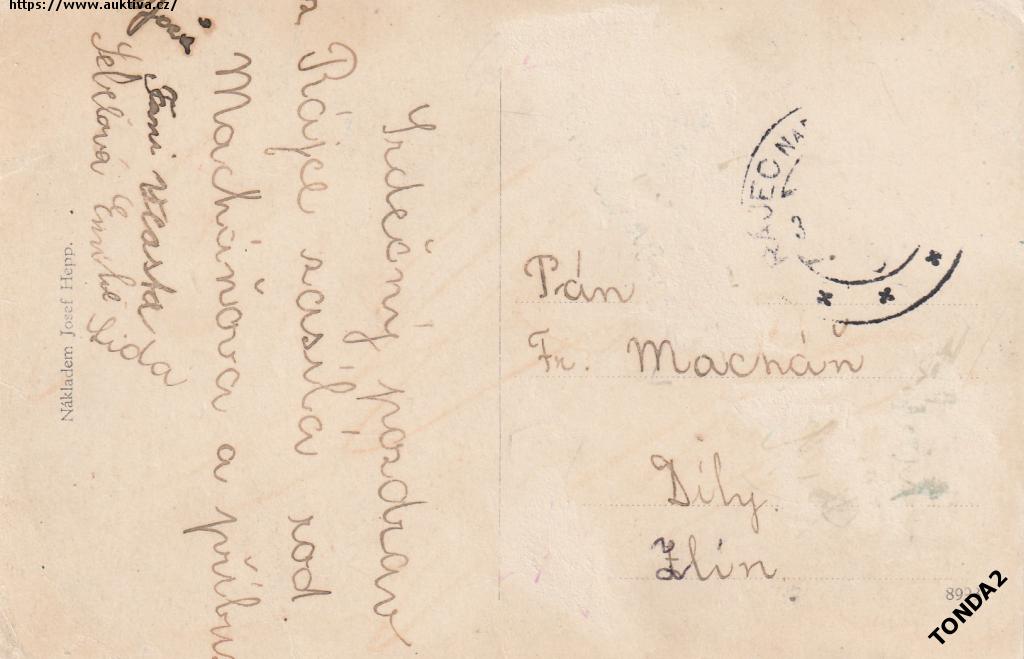 https://www.auktiva.cz/
Srdečný pozdrav
Rájce zasílá rod
Macháňova a příbu
Fani Vlasta
Šebelová Emilie Lida
Nákladem Josef Hepp.
RÁJEC NA
Pán
Fr. Machán
Díly
Zlín
892
TONDA2